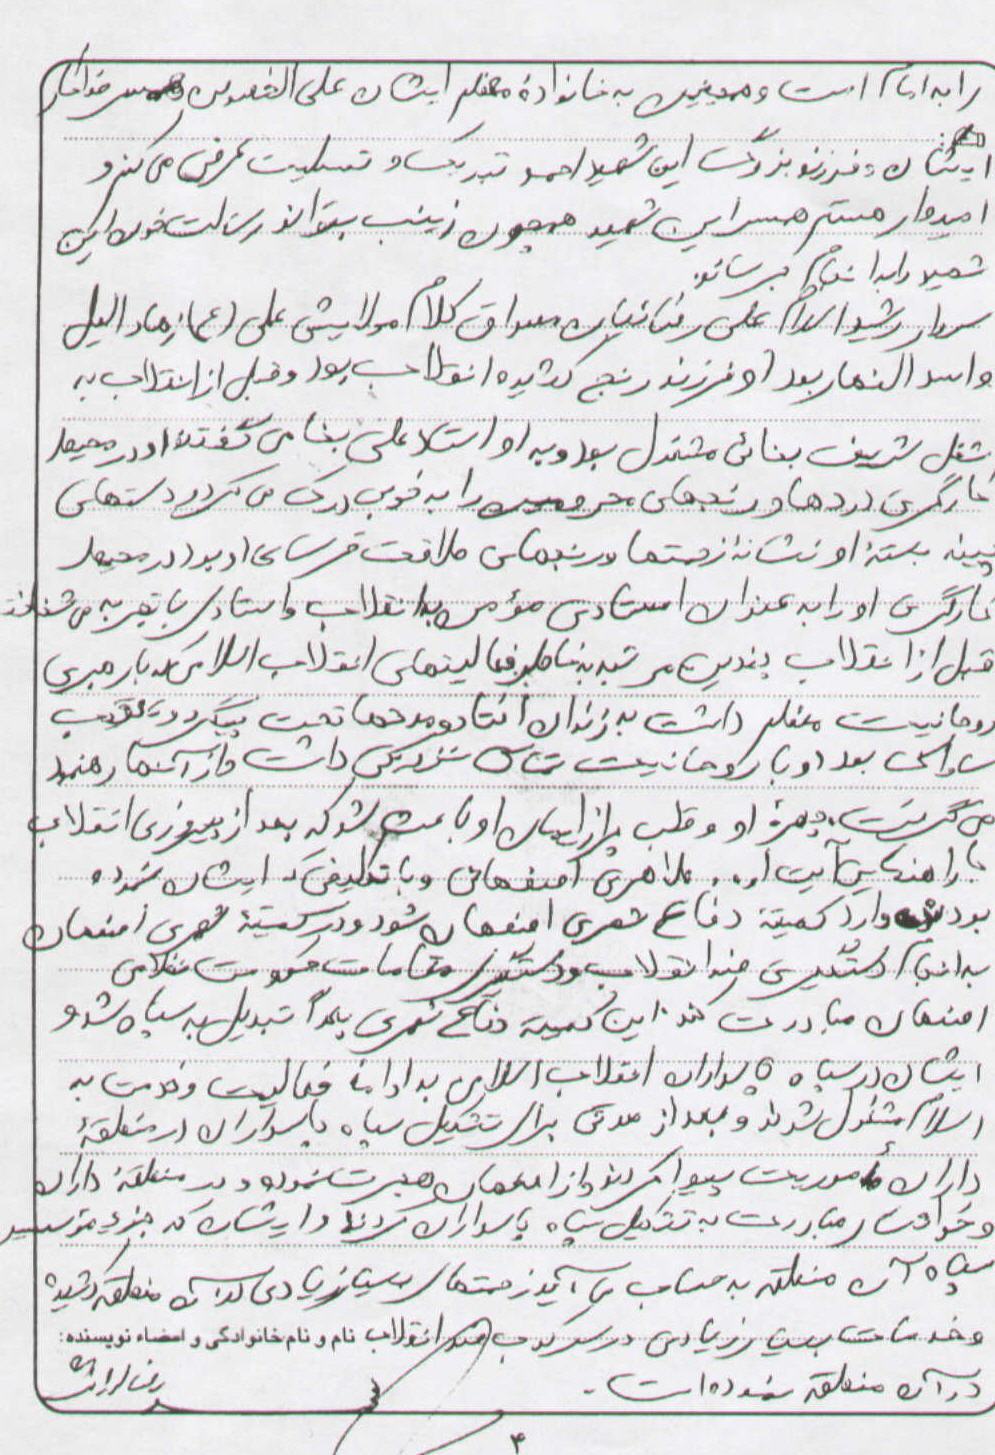 را به امام امت و همچنین به خانواده معظم ایشان علی الخصوص همسر فداکار
ایشان و فرزند بزرگ این شهید احمد تبریک و تسلیت عرض می کنم و
امیدوار هستم همسر این شهید همچون زینب بتواند رسالت خون این
شهید را به انجام برساند.
سردار رشید اسلام علی رضائیان مصداق کلام مولایش علی (ع) زهاد الیل
و اسد النهار بود او فرزند رنج کشیده انقلاب بود و قبل از انقلاب به
شغل شریف بنائی مشغول بود و به او استاد علی بنا می گفتند او در محیط
کارگری دردها و رنجهای محرومین را به خوبی درک می کرد دستهای
پینه بسته او نشانه زحمتها و رنجهای طاقت فرسای او بود در محیط
کارگری او را به عنوان استادی مؤمن به انقلاب و استادی با تجربه می شناختند
قبل از انقلاب چندین مرتبه به خاطر فعالیتهای انقلاب اسلامی که با رهبری
روحانیت معظم داشت به زندان افتاد و مدتها تحت پیگرد و تعقیب
ساواک بود او با روحانیت تماس نزدیکی داشت و از آنها رهنمود
می گرفت، چهره او و قلب پر از ایمان او باعث شد که بعد از پیروزی انقلاب
با راهنمایی آیت ا... طاهری اصفهانی و با تکلیفی که ایشان نموده
بود وارد کمیته دفاع شهری اصفهان شود و در کمیته شهری اصفهان
به انجام دستگیری ضد انقلاب و دستگیری مقامات حکومت نظامی
اصفهان مبادرت کند. این کمیته دفاع شهری بعداً تبدیل به سپاه شد و
ایشان در سپاه پاسداران انقلاب اسلامی به ادامه فعالیت و خدمت به
اسلام مشغول شدند و بعد از مدتی برای تشکیل سپاه پاسداران در منطقه
داران مأموریت پیدا کردند و از اصفهان هجرت نموده و در منطقه داران
و خوانسار مبادرت به تشکیل سپاه پاسداران کردند و ایشان که جزء مؤسسین
سپاه آن منطقه به حساب می آید زحمتهای بسیار زیادی در آن منطقه کشیده
و خدمات بسیار زیادی در سرکوب ضد انقلاب نام و نام خانوادگی و امضاء نویسنده:
در آن منطقه نموده است.
۴